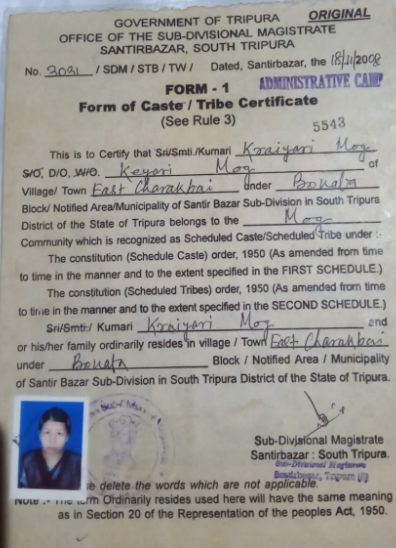 ORIGINAL
GOVERNMENT OF TRIPURA
OFFICE OF THE SUB-DIVISIONAL MAGISTRATE
SANTIRBAZAR, SOUTH TRIPURA
No. 3031 / SDM / STB / TW / Dated, Santirbazar, the 18/11/2008
ADMINISTRATIVE CAMP
FORM - 1
Form of Caste / Tribe Certificate
(See Rule 3)
5543
This is to Certify that Sri/Smti./Kumari Kraiyari Mog
S/O, D/O, W/O. Keyari Mog of
Village/ Town East Charakbai under Bokafa
Block/ Notified Area/Municipality of Santir Bazar Sub-Division in South Tripura
District of the State of Tripura belongs to the Mog
Community which is recognized as Scheduled Caste/Scheduled Tribe under :-
The constitution (Schedule Caste) order, 1950 (As amended from time
to time in the manner and to the extent specified in the FIRST SCHEDULE.)
The constitution (Scheduled Tribes) order, 1950 (As amended from time
to time in the manner and to the extent specified in the SECOND SCHEDULE.)
Sri/Smti./ Kumari Kraiyari Mog and
or his/her family ordinarily resides in village / Town East Charakbai
under Bokafa Block / Notified Area / Municipality
of Santir Bazar Sub-Division in South Tripura District of the State of Tripura.
Sub-Divisional Magistrate
Santirbazar : South Tripura.
Sub-Divisional Magistrate
Santirbazar, Tripura (S)
delete the words which are not applicable.
Note :- The term Ordinarily resides used here will have the same meaning
as in Section 20 of the Representation of the peoples Act, 1950.